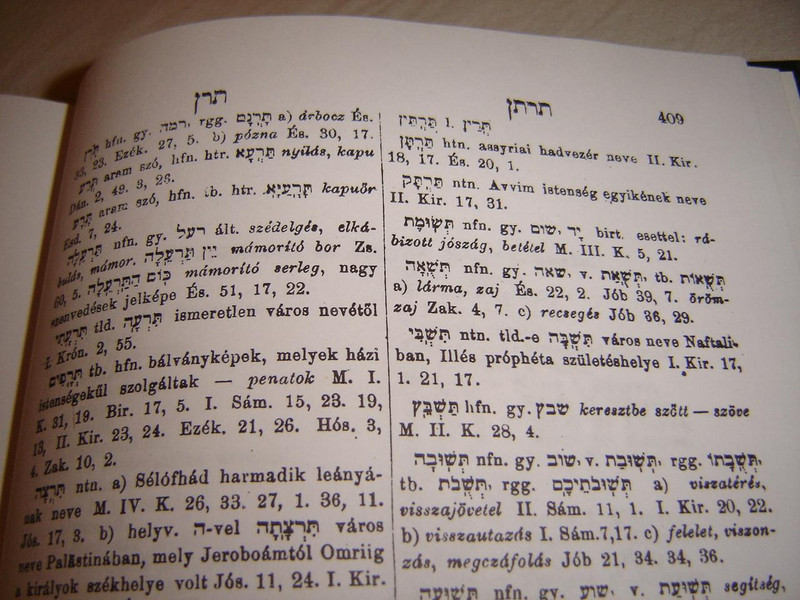 תרן
תרתן
409
תֹּרֶן hfn. gy. ירמה, rgg. תָּרְנָם a) árbocz És.
33, 23. Ezék. 27, 5. b) pózna És. 30, 17.
תְּרַע aram szó, hfn. htr. תַּרְעָא nyílás, kapu
Dán. 2, 49. 3, 26.
תָּרָע aram szó, hfn. tb. htr. תָּרָעַיָּא kapuőr
Esd. 7, 24.
תַּרְעֵלָה nfn. gy. רעל ált. szédelgés, elká-
bulás, mámor. יַיִן תַּרְעֵלָה mámorító bor Zs.
60, 5. כּוֹס הַתַּרְעֵלָה mámorító serleg, nagy
szenvedések jelképe És. 51, 17, 22.
תִּרְעָתִי tld. תִּרְעָה ismeretlen város nevétől
I. Krón. 2, 55.
תְּרָפִים tb. hfn. bálványképek, melyek házi
istenségekül szolgáltak — penatok M. I.
K. 31, 19. Bir. 17, 5. I. Sám. 15, 23. 19,
13, II. Kir. 23, 24. Ezék. 21, 26. Hós. 3,
4. Zak. 10, 2.
תִּרְצָה ntn. a) Sélófhád harmadik leányá-
nak neve M. IV. K. 26, 33. 27, 1. 36, 11.
Jós. 17, 3. b) helyv. ה-vel תִּרְצָתָה város
neve Palästinában, mely Jeroboámtól Omriig
a királyok székhelye volt Jós. 11, 24. I. Kir.
תַּרְתֵּין l. תְּרֵין
תַּרְתָּן htn. assyriai hadvezér neve II. Kir.
18, 17. És. 20, 1.
תַּרְתָּק ntn. Avvim istenség egyikének neve
II. Kir. 17, 31.
תְּשׂוּמֶת nfn. gy. שום, יָד birt. esettel: rá-
bizott jószág, betétel M. III. K. 5, 21.
תְּשֻׁאָה nfn. gy. שאה, v. תְּשֻׁאַת, tb. תְּשֻׁאוֹת
a) lárma, zaj És. 22, 2. Jób 39, 7. öröm-
zaj Zak. 4, 7. c) recsegés Jób 36, 29.
תִּשְׁבִּי ntn. tld.-e תִּשְׁבֶּה város neve Naftali-
ban, Illés próphéta születéshelye I. Kir. 17,
1. 21, 17.
תַּשְׁבֵּץ hfn. gy. שבץ keresztbe szőtt — szöve
M. II. K. 28, 4.
תְּשׁוּבָה nfn. gy. שוב, v. תְּשׁוּבַת, rgg. תְּשֻׁבָתוֹ,
tb. תְּשֻׁבֹת, rgg. תְּשׁוּבֹתֵיכֶם a) viszatérés,
visszajövetel II. Sám. 11, 1. I. Kir. 20, 22.
b) visszautazás I. Sám. 7,17. c) felelet, viszon-
zás, megczáfolás Jób 21, 34. 34, 36.
תְּשׁוּעָה nfn. gy. שוע, v. תְּשׁוּעַת segítség,